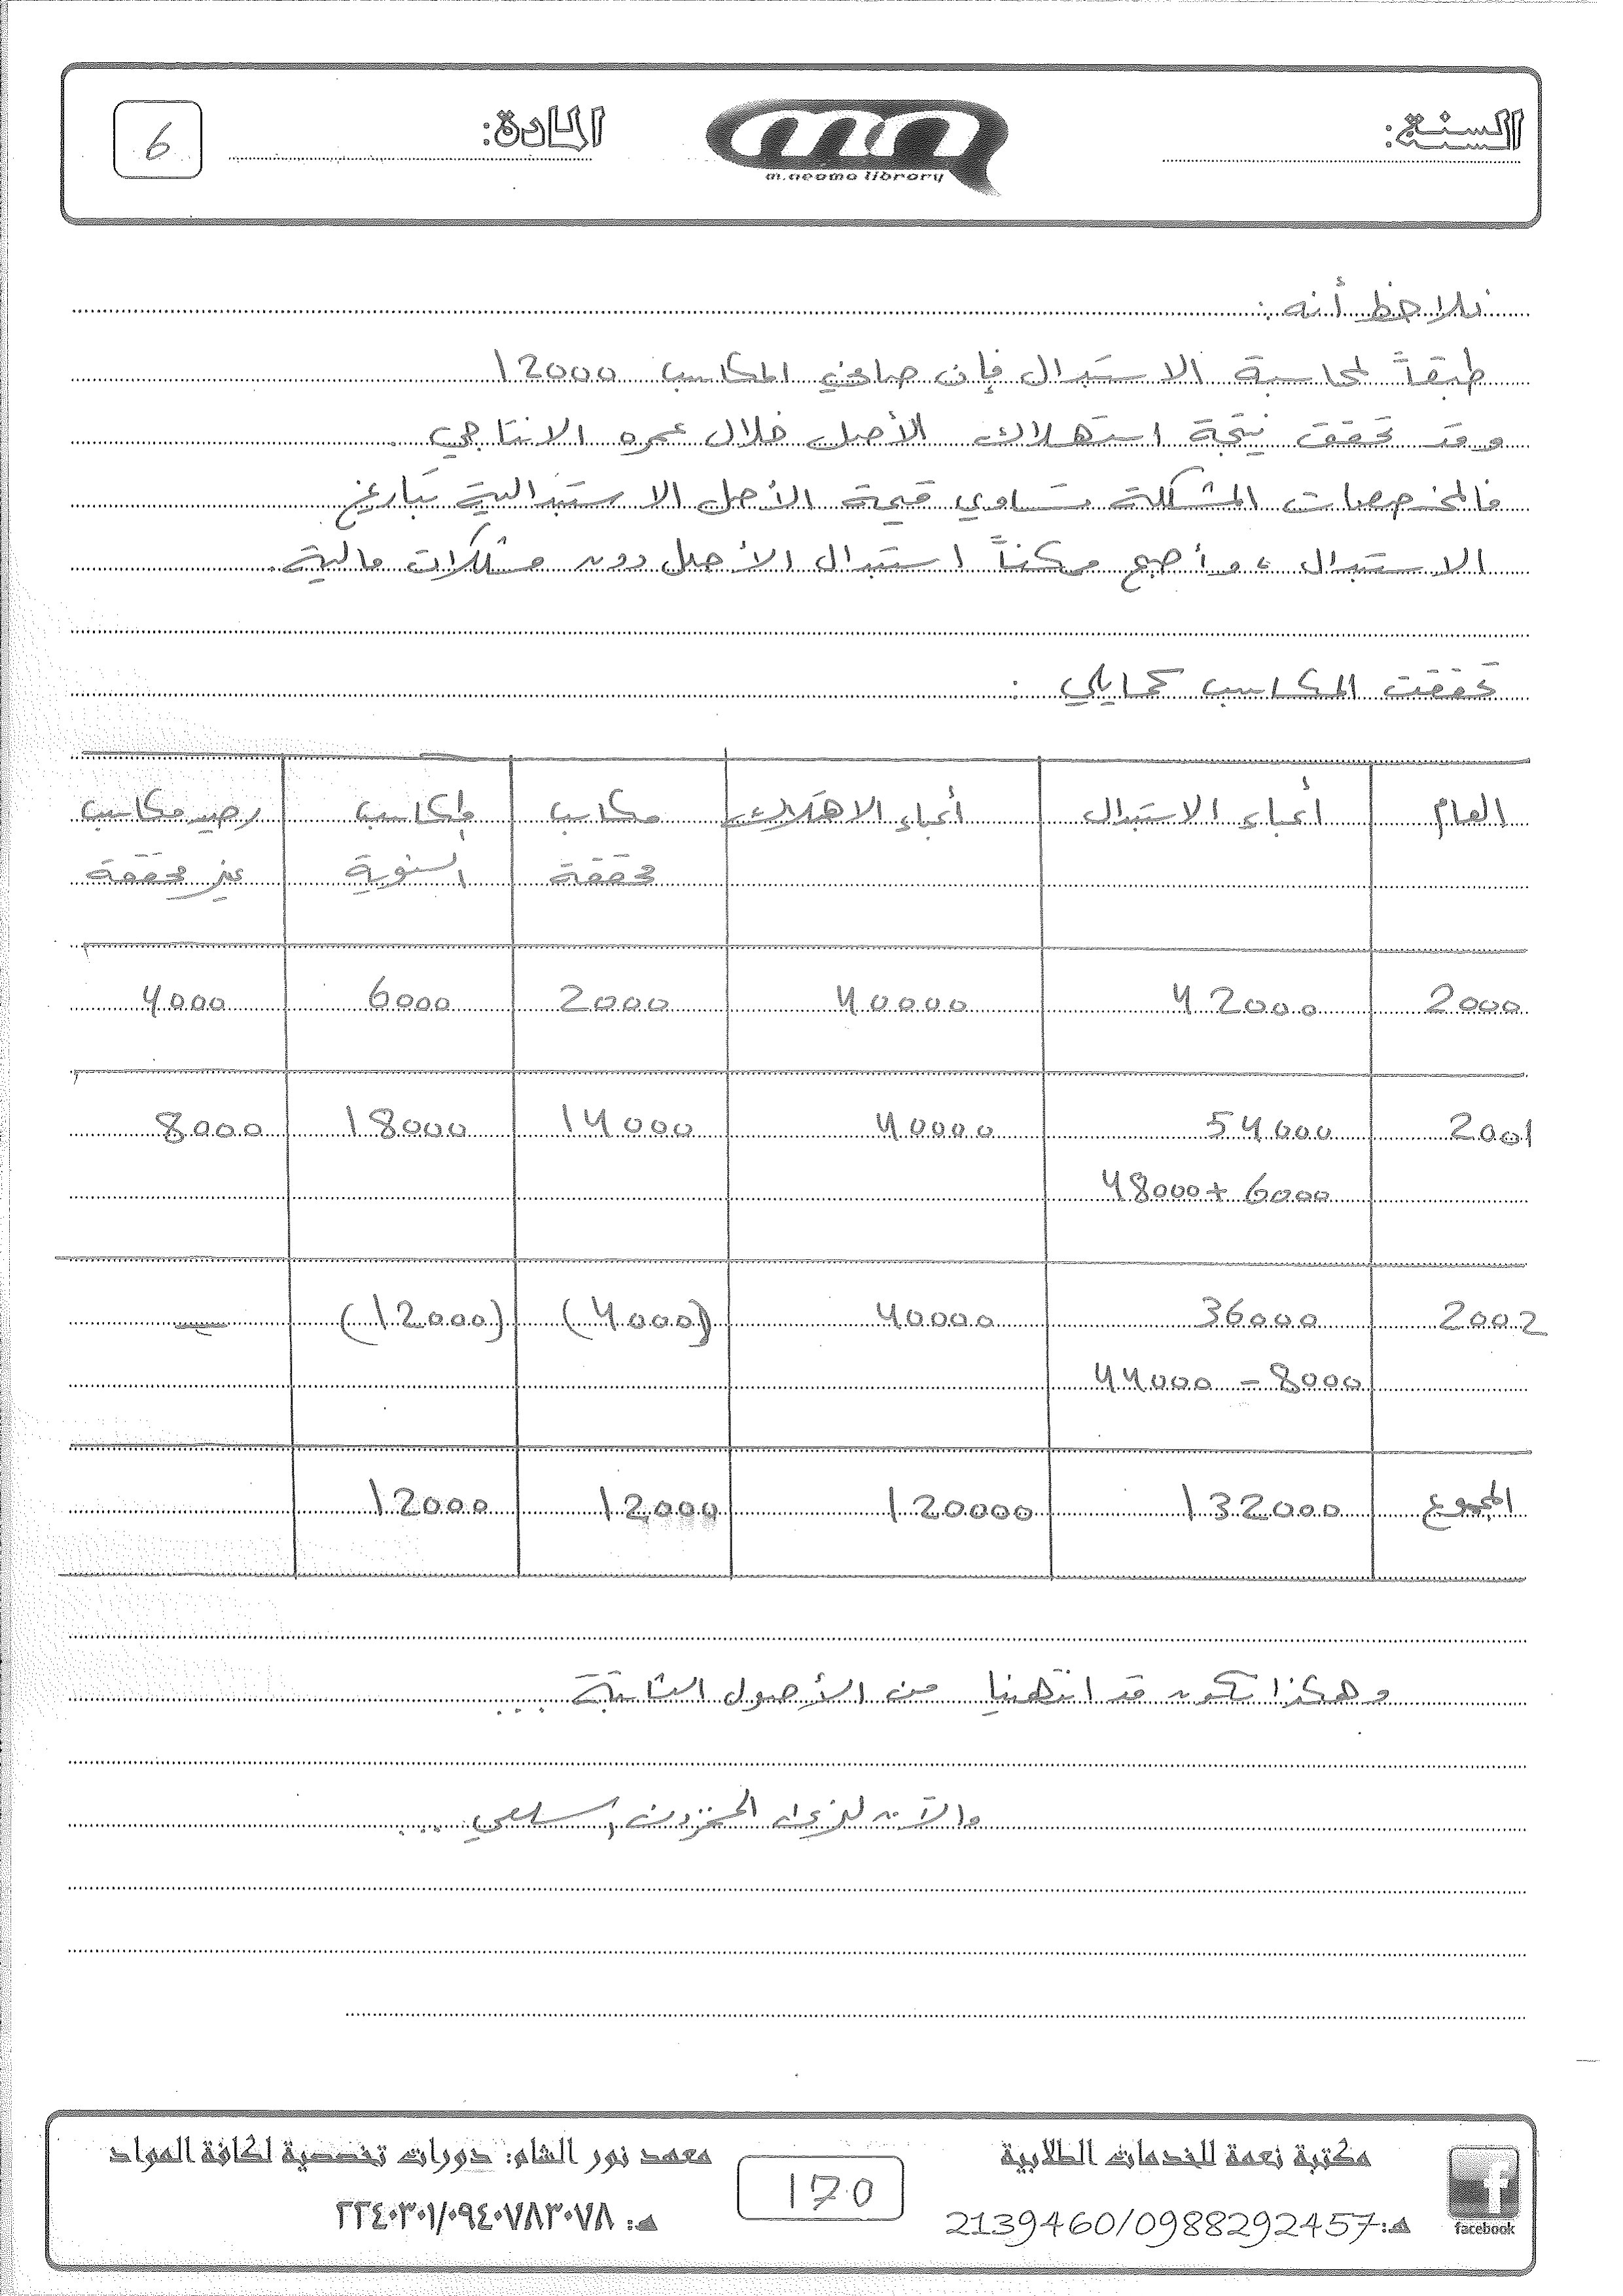 السنة:
m.neama library
المادة:
6
نلاحظ أنه:
طبقاً لمحاسبة الاستبدال فإن صافي المكاسب 12000
وقد تحقق نتيجة استهلاك الأصل خلال عمره الانتاجي.
فالمخصصات المشكلة تساوي قيمة الأصل الاستبدالية بتاريخ
الاستبدال، وأصبح ممكناً استبدال الأصل دون مشكلات مالية.
تحققت المكاسب كمايلي:
العام أعباء الاستبدال أعباء الاهتلاك مكاسب المكاسب رصيد مكاسب
محققة السنوية غير محققة
2000 42000 40000 2000 6000 4000
2001 54000 40000 14000 18000 8000
48000 + 6000
2002 36000 40000 (4000) (12000) —
44000 - 8000
المجموع 132000 120000 12000 12000
وهكذا نكون قد انتهينا من الأصول الثابتة ...
والآن لنرى المخزون السلعي ...
مكتبة نعمة للخدمات الطلابية
هـ: 2139460/0988292457
facebook
170
معهد نور الشام: دورات تخصصية لكافة المواد
هـ: ٢٢٤٠٣٠١/٠٩٤٠٧٨٣٠٧٨